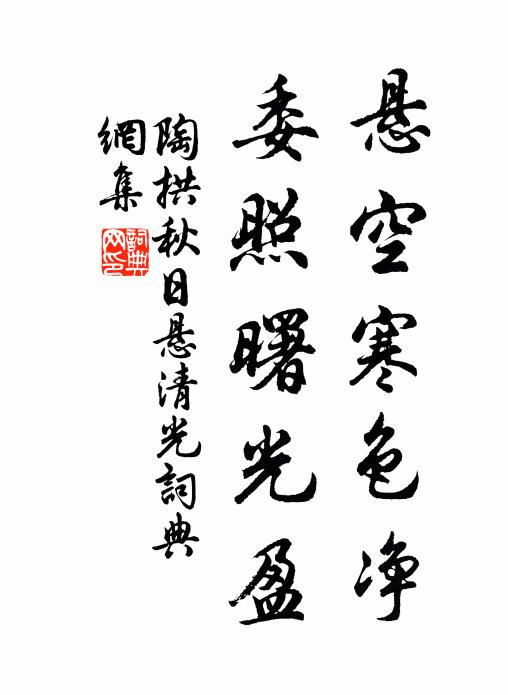 悬空寒色净
委照曙光盈
陶拱秋日悬清光詞典
網集
詞典網印